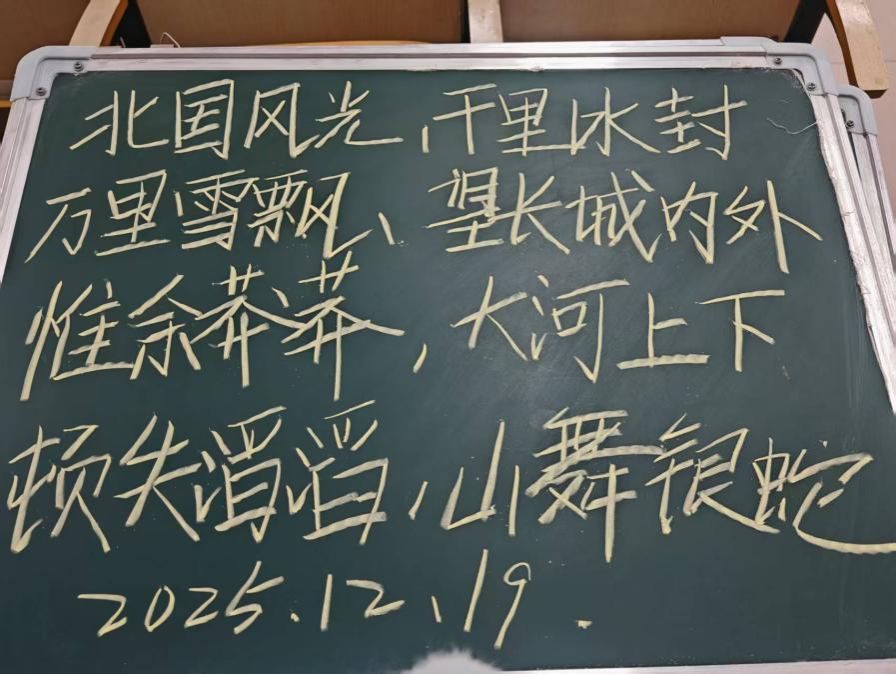 北国风光,千里冰封
万里雪飘、望长城内外
惟余莽莽,大河上下
顿失滔滔,山舞银蛇
2025.12.19.